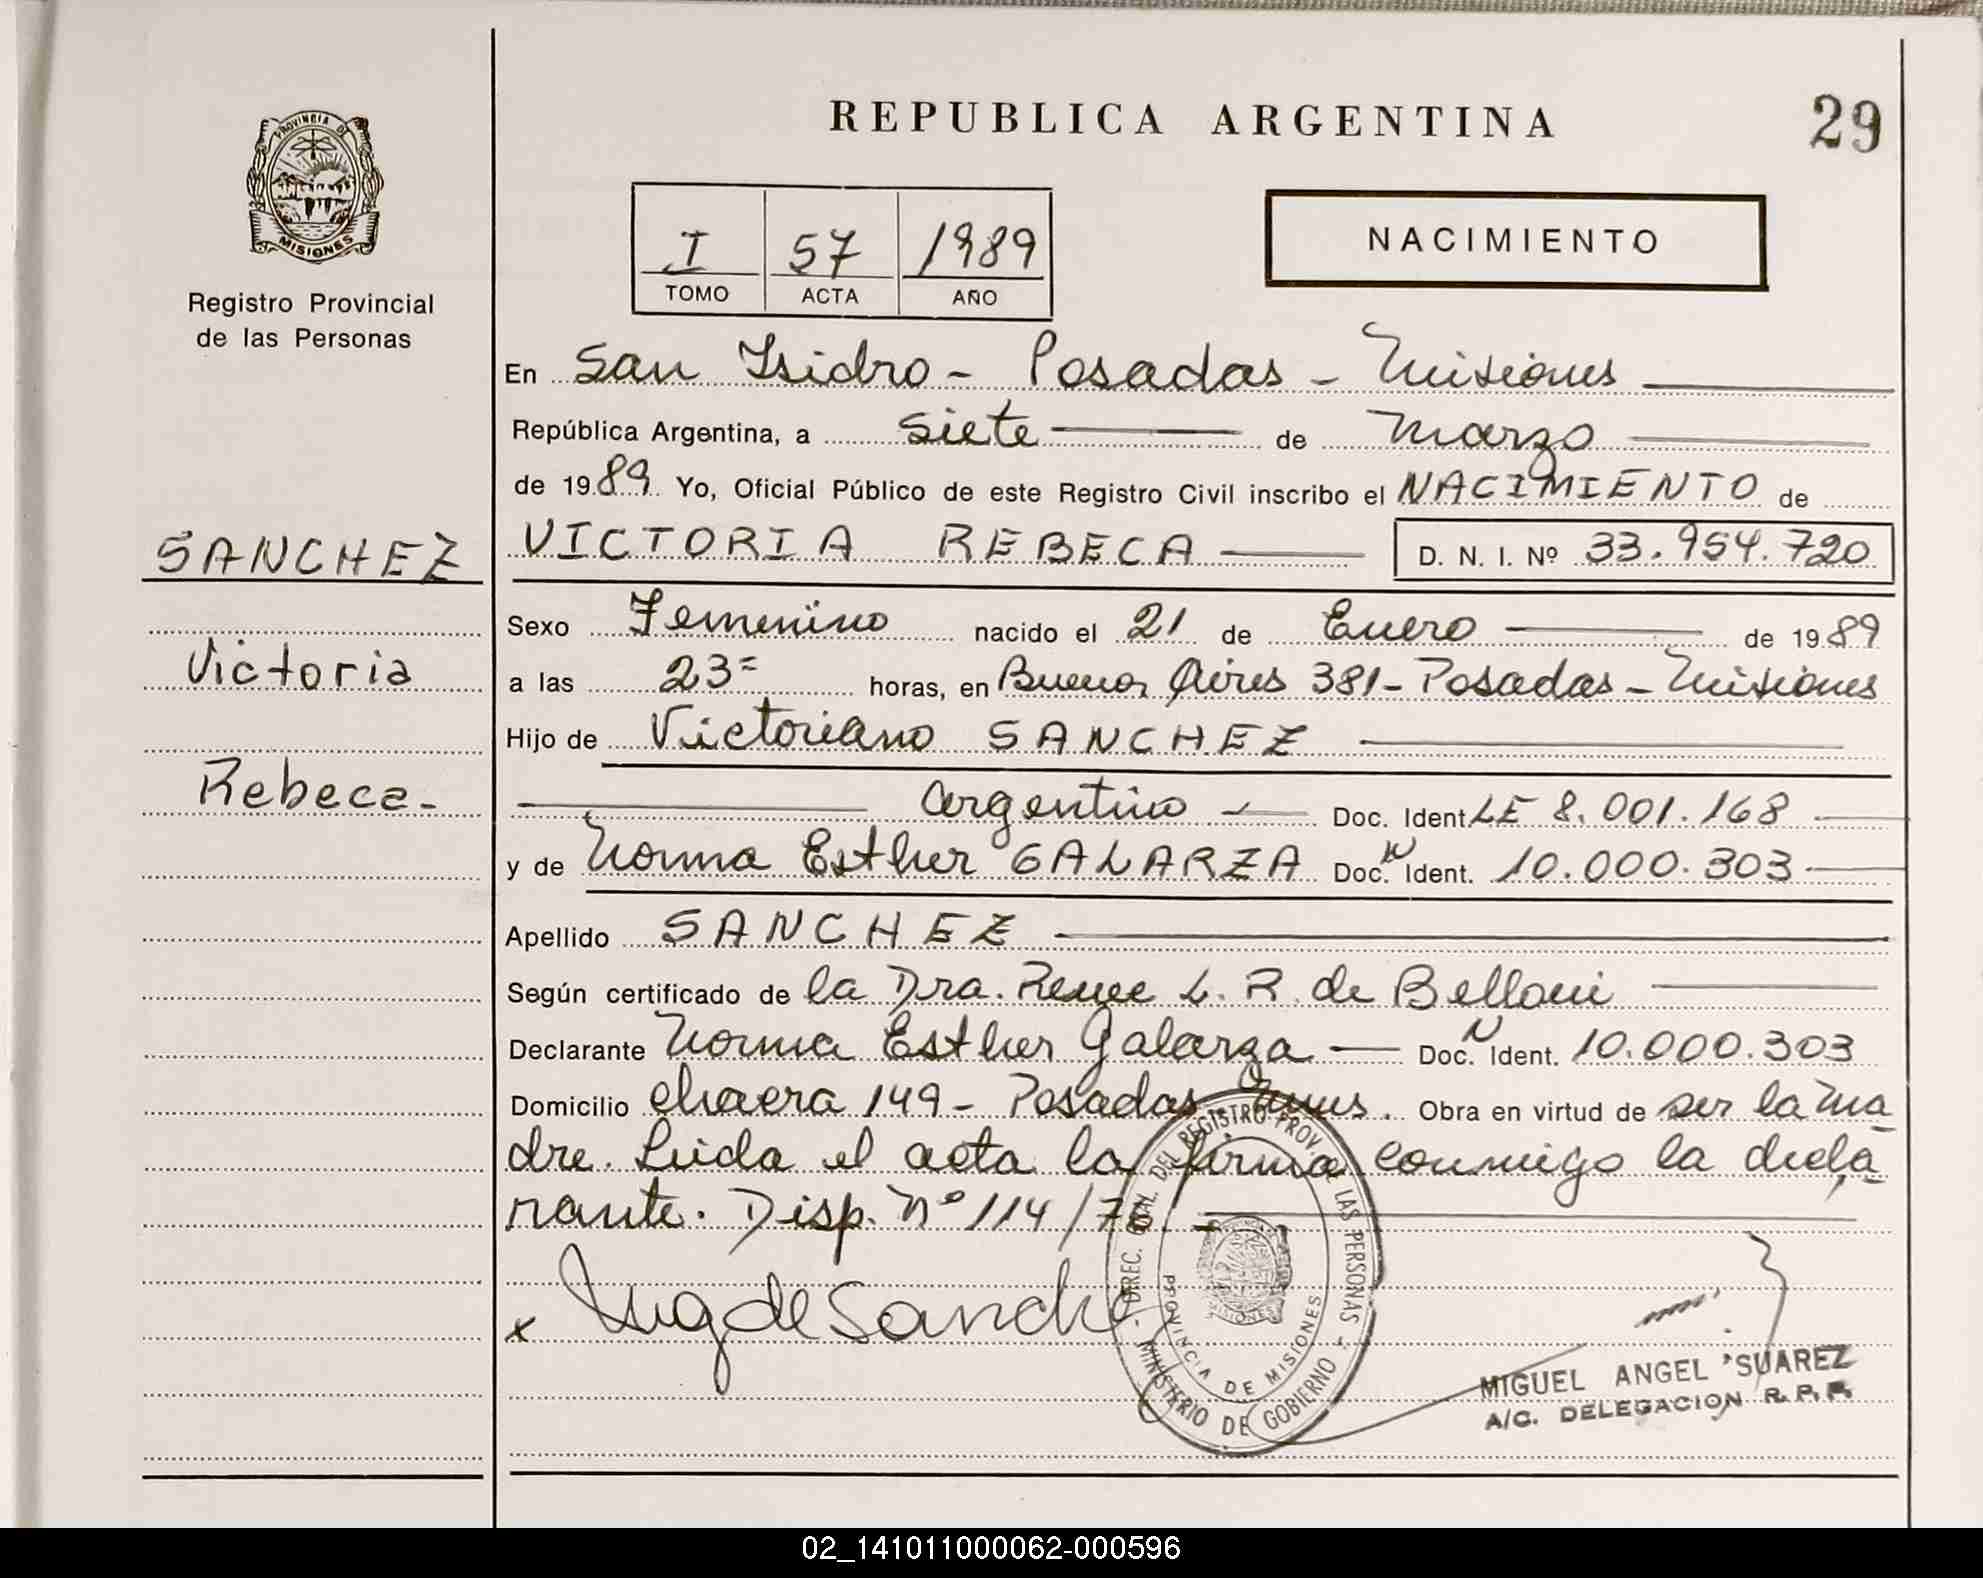 REPUBLICA ARGENTINA
29
PROVINCIA DE
MISIONES
Registro Provincial
de las Personas
I 57 1989
TOMO ACTA AÑO
NACIMIENTO
En San Isidro - Posadas - Misiones
República Argentina, a siete de Marzo
de 1989. Yo, Oficial Público de este Registro Civil inscribo el NACIMIENTO de
SANCHEZ
VICTORIA REBECA D. N. I. Nº 33.954.720
Sexo Femenino nacido el 21 de Enero de 1989
Victoria
a las 23= horas, en Buenos Aires 381 - Posadas - Misiones
Hijo de Victoriano SANCHEZ
Rebeca -
argentino Doc. Ident. LE 8.001.168
y de Norma Esther GALARZA Doc. N Ident. 10.000.303
Apellido SANCHEZ
Según certificado de la Dra. Renee L. R. de Belloni
Declarante Norma Esther Galarza Doc. N Ident. 10.000.303
Domicilio chacra 149 - Posadas Mnes. Obra en virtud de ser la ma
dre. Leida el acta la firma conmigo la decla
rante. Disp. Nº 114/76.
x de Sanche
DIREC. GRAL. DEL REGISTRO PROV. DE LAS PERSONAS - MINISTERIO DE GOBIERNO -
PROVINCIA DE MISIONES
MIGUEL ANGEL SUAREZ
A/C. DELEGACION R. P. P.
02_141011000062-000596